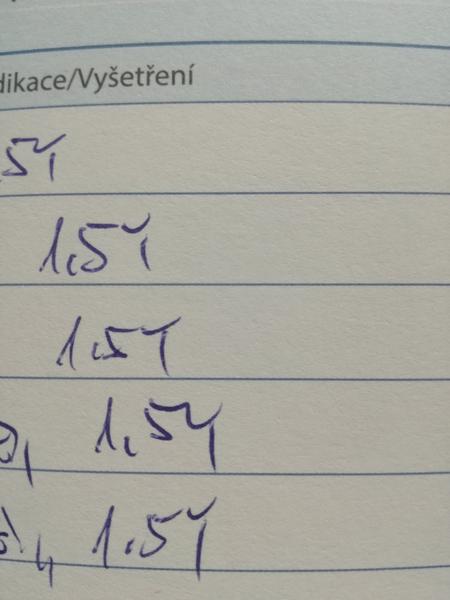 dikace/Vyšetření
.54
1.54
1.54
1.54
1.54